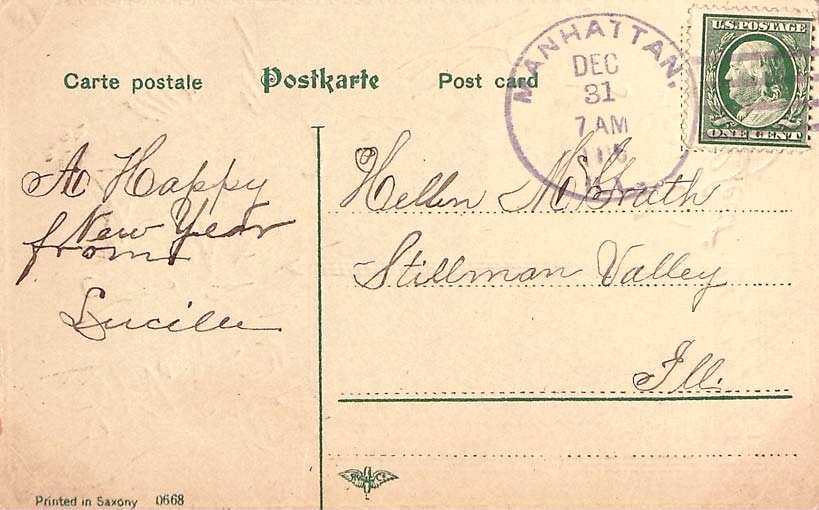 Carte postale Postkarte Post card
MANHATTAN,
DEC
31
7 AM
U.S. POSTAGE
ONE CENT
A Happy
New Year
from
Lucile
Hellen McGrath
Stillman Valley
Ill.
Printed in Saxony 0668